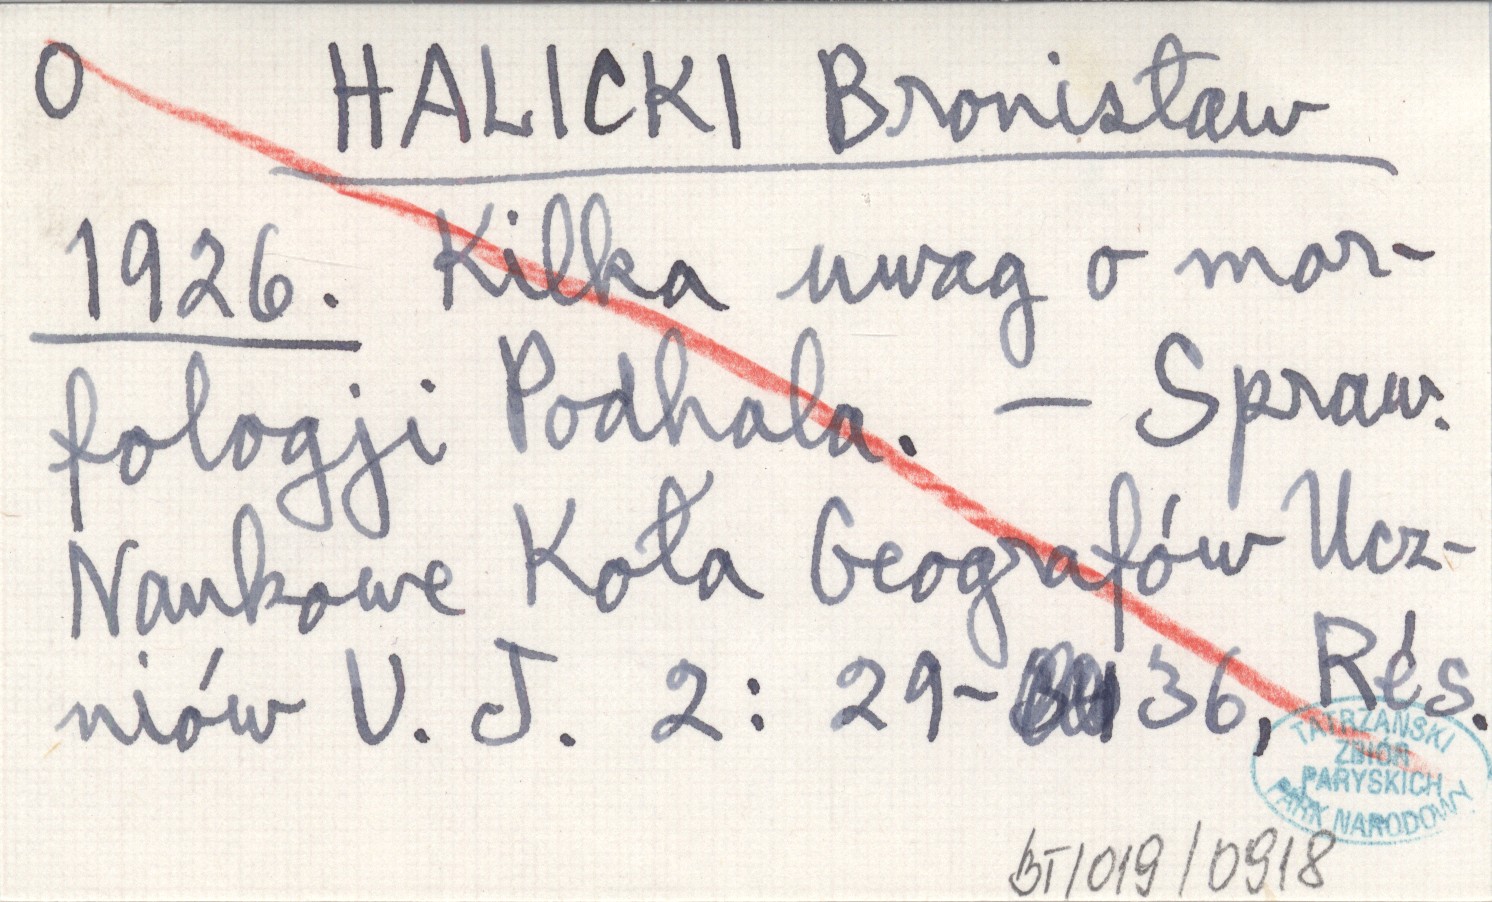 O HALICKI Bronisław
1926. Kilka uwag o mor-
fologji Podhala. — Spraw.
Naukowe Koła Geografów Ucz-
niów U. J. 2: 29-36, Rés.
TATRZAŃSKI
ZBIÓR
PARYSKICH
PARK NARODOWY
BT/019/0918